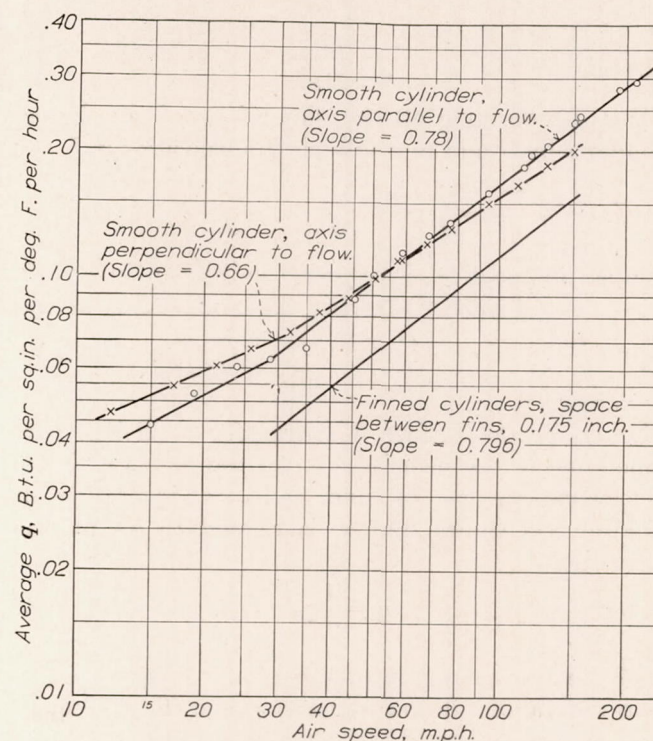 .40
.30
.20
.10
.08
.06
.04
.03
.02
.01
Average q, B.t.u. per sq.in. per deg. F. per hour
Smooth cylinder,
axis parallel to flow.
(Slope = 0.78)
Smooth cylinder, axis
perpendicular to flow.
(Slope = 0.66)
Finned cylinders, space
between fins, 0.175 inch.
(Slope = 0.796)
10 15 20 30 40 60 80 100 200
Air speed, m.p.h.